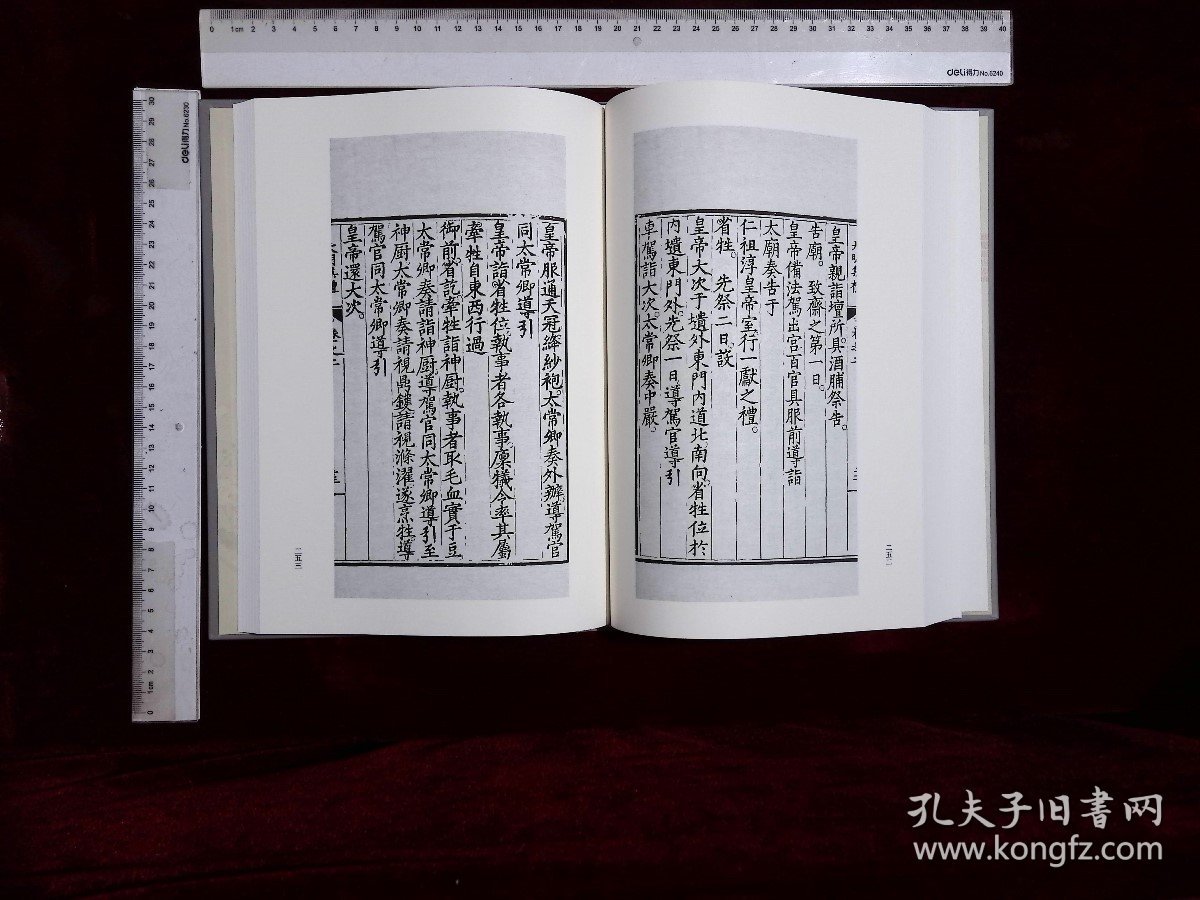 皇帝親詣壇所具酒脯祭告。
告廟。 致齋之第一日。
皇帝備法駕出宮百官具服前導詣
太廟奏告于
仁祖淳皇帝室行一獻之禮。
省牲。 先祭二日設
皇帝大次于壝外東門內道北南向省牲位於
內壝東門外先祭一日導駕官導引
車駕詣大次太常卿奏中嚴。
二五二
皇帝服通天冠絳紗袍太常卿奏外辦導駕官
同太常卿導引
皇帝詣省牲位執事者各執事廩犧令率其屬
牽牲自東西行過
御前省訖牽牲詣神厨執事者取毛血實于豆
太常卿奏請詣神厨導駕官同太常卿導引至
神厨太常卿奏請視鼎鑊請視滌濯遂烹牲導
駕官同太常卿導引
皇帝還大次。
二五三
0 1cm 2 3 4 5 6 7 8 9 10 11 12 13 14 15 16 17 18 19 20 21 22 23 24 25 26 27 28 29 30 31 32 33 34 35 36 37 38 39 40
deli得力 No.6240
deli得力 No.6230
30 29 28 27 26 25 24 23 22 21 20 19 18 17 16 15 14 13 12 11 10 9 8 7 6 5 4 3 2 1cm 0
孔夫子旧书网
www.kongfz.com